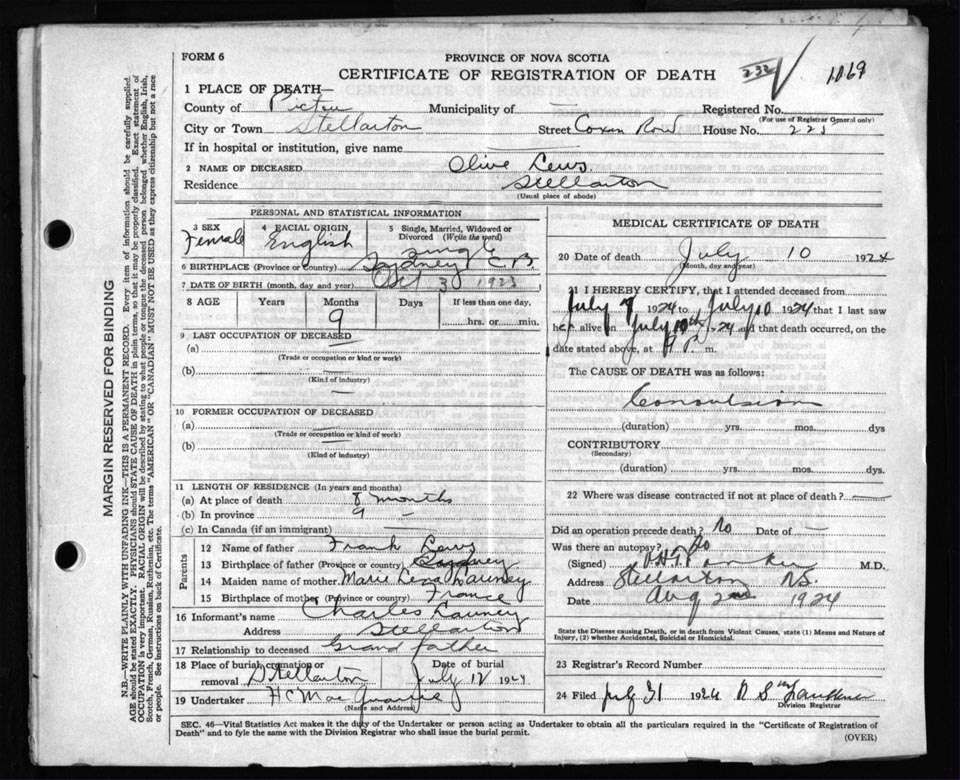 FORM 6
PROVINCE OF NOVA SCOTIA
CERTIFICATE OF REGISTRATION OF DEATH
232
1069
1 PLACE OF DEATH—
County of Pictou Municipality of — Registered No.
(For use of Registrar General only)
City or Town Stellarton Street Coxen Row House No. 223
If in hospital or institution, give name
2 NAME OF DECEASED Olive Lews.
Residence Stellarton
(Usual place of abode)
PERSONAL AND STATISTICAL INFORMATION
3 SEX Female
4 RACIAL ORIGIN English
5 Single, Married, Widowed or Divorced (Write the word) Single
6 BIRTHPLACE (Province or Country) Sydney C.B.
7 DATE OF BIRTH (month, day and year) Oct 30 1923
8 AGE Years Months Days If less than one day,
9 hrs. or min.
9 LAST OCCUPATION OF DECEASED
(a) —
(Trade or occupation or kind or work)
(b)
(Kind of industry)
—
10 FORMER OCCUPATION OF DECEASED
(a)
(Trade or occupation or kind of work)
(b) —
(Kind of industry)
11 LENGTH OF RESIDENCE (In years and months)
(a) At place of death 8 months
(b) In province 9
(c) In Canada (if an immigrant) —
Parents
12 Name of father Frank Lews
13 Birthplace of father (Province or Country)
14 Maiden name of mother Marie Launey
15 Birthplace of mother (Province or Country) France
16 Informant's name Charles Launey
Address Stellarton
17 Relationship to deceased Grand father
18 Place of burial, cremation or removal Stellarton Date of burial July 12 1924
19 Undertaker H C Mac
(Name and Address)
MEDICAL CERTIFICATE OF DEATH
20 Date of death July 10 1924
(Month, day and year)
21 I HEREBY CERTIFY, that I attended deceased from
July 9 1924 to July 10 1924 that I last saw
her alive on July 10th 1924 and that death occurred, on the
date stated above, at P. m.
The CAUSE OF DEATH was as follows:
Convulsion
(duration) yrs. mos. dys
CONTRIBUTORY
(Secondary)
(duration) yrs. mos. dys.
22 Where was disease contracted if not at place of death? —
Did an operation precede death? No Date of —
Was there an autopsy? No
(Signed) M.D.
Address Stellarton N.S.
Date Aug 2nd 1924
State the Disease causing Death, or in death from Violent Causes, state (1) Means and Nature of
Injury, (2) whether Accidental, Suicidal or Homicidal.
23 Registrar's Record Number
24 Filed July 31 1924
Division Registrar
SEC. 46—Vital Statistics Act makes it the duty of the Undertaker or person acting as Undertaker to obtain all the particulars required in the "Certificate of Registration of
Death" and to fyle the same with the Division Registrar who shall issue the burial permit.
(OVER)
MARGIN RESERVED FOR BINDING
N.B.—WRITE PLAINLY WITH UNFADING INK—THIS IS A PERMANENT RECORD. Every item of information should be carefully supplied.
AGE should be stated EXACTLY. PHYSICIANS should STATE CAUSE OF DEATH in plain terms, so that it may be properly classified. Exact statement of
OCCUPATION is very important. RACIAL ORIGIN will be described by stating to what people or tongue the deceased person belonged whether English, Irish,
Scotch, French, German, Russian, Ruthenian, etc. The terms "AMERICAN" OR "CANADIAN" MUST NOT BE USED as they express citizenship but not a race
or people. See instructions on back of Certificate.